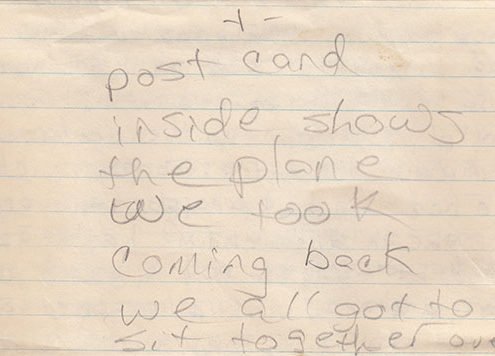 + -
post card
inside shows
the plane
we took
coming back
we all got to
sit together